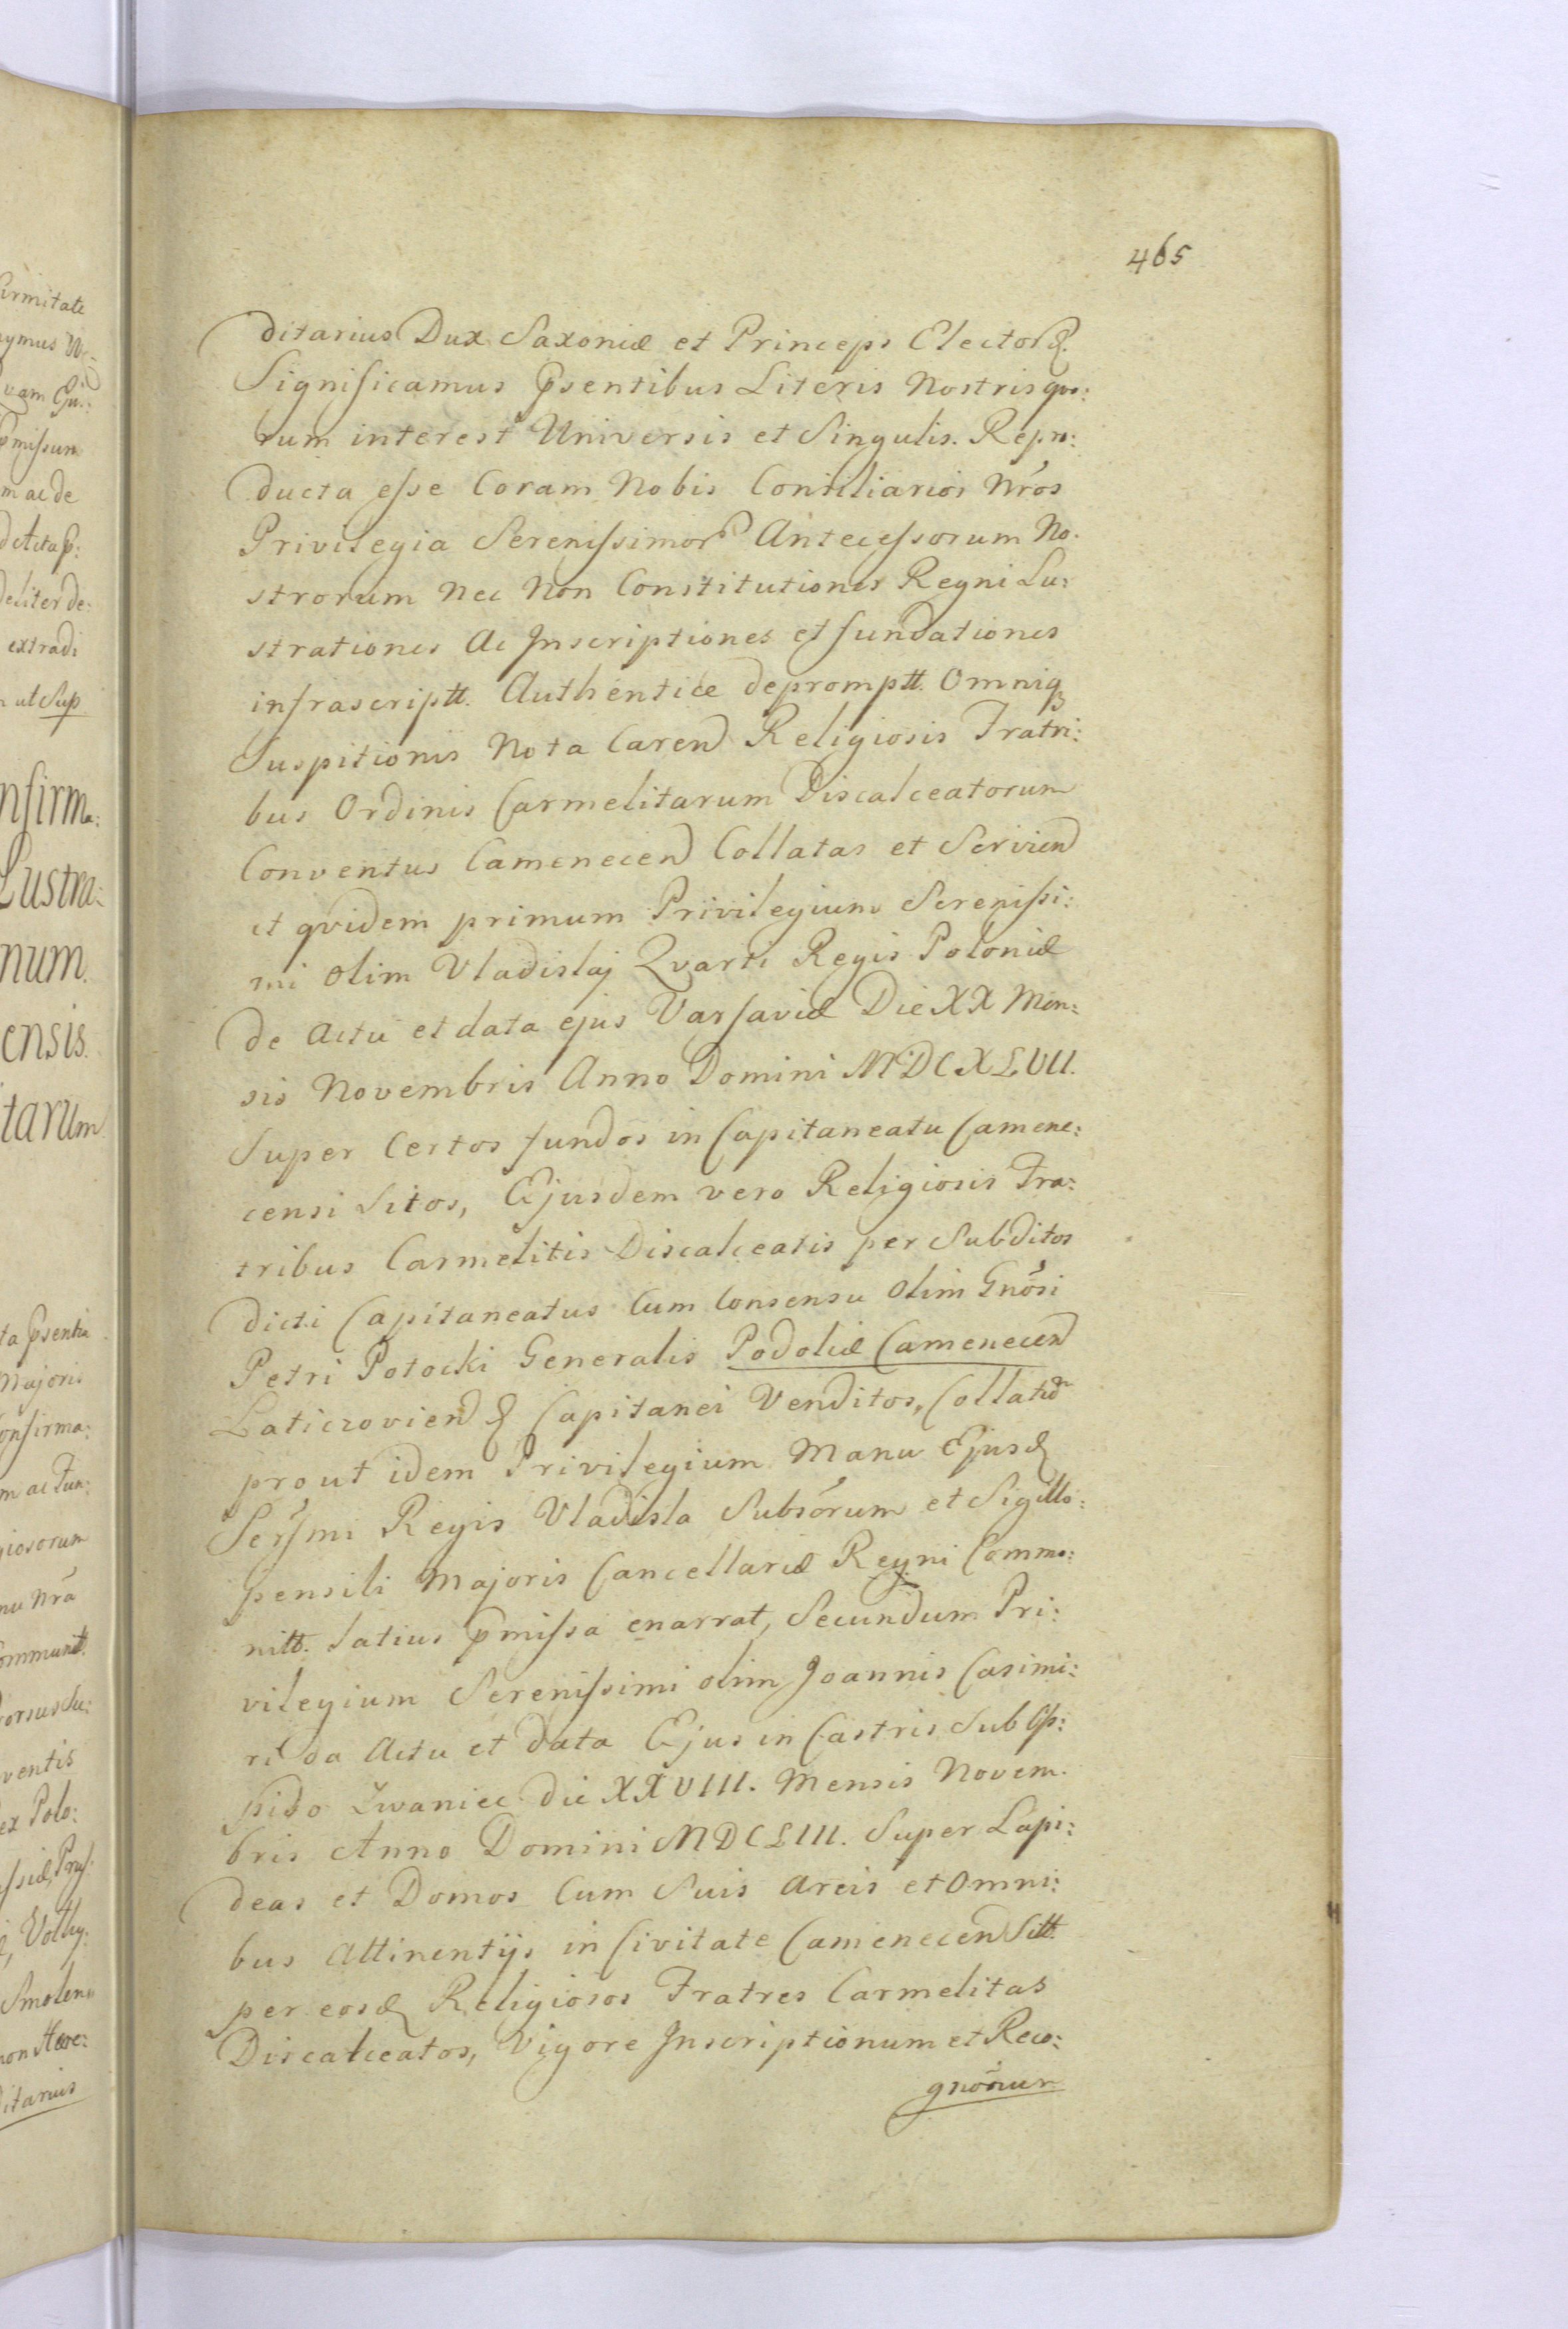 465
firmitate
ditarius Dux Saxoniæ et Princeps Elector&.
Significamus Psentibus Literis Nostris qvo:
rum interest Universis et Singulis. Repro:
ducta esse Coram Nobis Consiliarios Nros
Privilegia Serenissimor Antecessorum No.
strorum Nec Non Constitutiones Regni Lu:
strationes Ac Inscriptiones et fundationes
infrascriptt. Authentice depromptt. Omniq
Suspitionis Nota Caren Religiosis Fratri:
bus Ordinis Carmelitarum Discalceatorum
Conventus Camenecen Collatas et Servien
et qvidem primum Privilegium Serenissi:
mi olim Vladislaj Qvarti Regis Poloniæ
de Actu et data ejus Varsaviæ Die XX Men:
sis Novembris Anno Domini MDCXLVII.
Super Certos fundos in Capitaneatu Camene:
censi Sitos, Ejusdem vero Religiosis Fra:
tribus Carmelitis Discalceatis per Subditos
dicti Capitaneatus Cum Consensu olim Gnosi
Petri Potocki Generalis Podoliæ Camenecen
Laticzovien & Capitanei Venditos, Collatu
prout idem Privilegium Manu Ejusd
Sersmi Regis Vladisla Subsorum et Sigillo:
pensili Majoris Cancellariæ Regni Commo:
nitt. latius pmissa enarrat, Secundum Pri:
vilegium Serenissimi olim Joannis Casimi:
ri da Actu et data Ejus in Castris Sub Op:
pido Zwaniec die XXVIII. Mensis Novem.
bris Anno Domini MDCLIII. Super Lapi:
deas et Domos Cum Suis Areis et Omni:
bus Attinentijs in Civitate Camenecen Sitt.
per eosd Religiosos Fratres Carmelitas
Discalceatos, Vigore Inscriptionum et Reco:
gnonum
extradi
ut Sup
nfirma:
Lustra:
num.
ensis.
tarum
ta Psentia
Majoris
onfirma:
m ac Fun:
giosorum
nu Nra
ommunitt.
ventis
ex Polo:
Volhy:
Smolen
non Hære:
ditarius